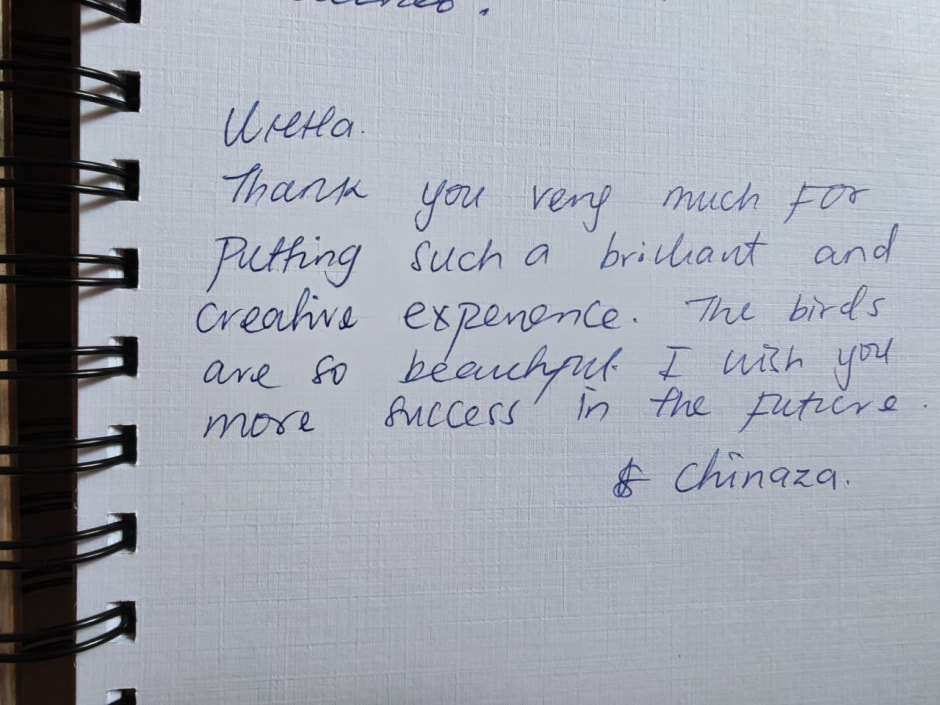 Инна.
Thank you very much For
putting such a brilliant and
creative experience. The birds
are so beautiful. I wish you
more success in the Future.
Chinaza.